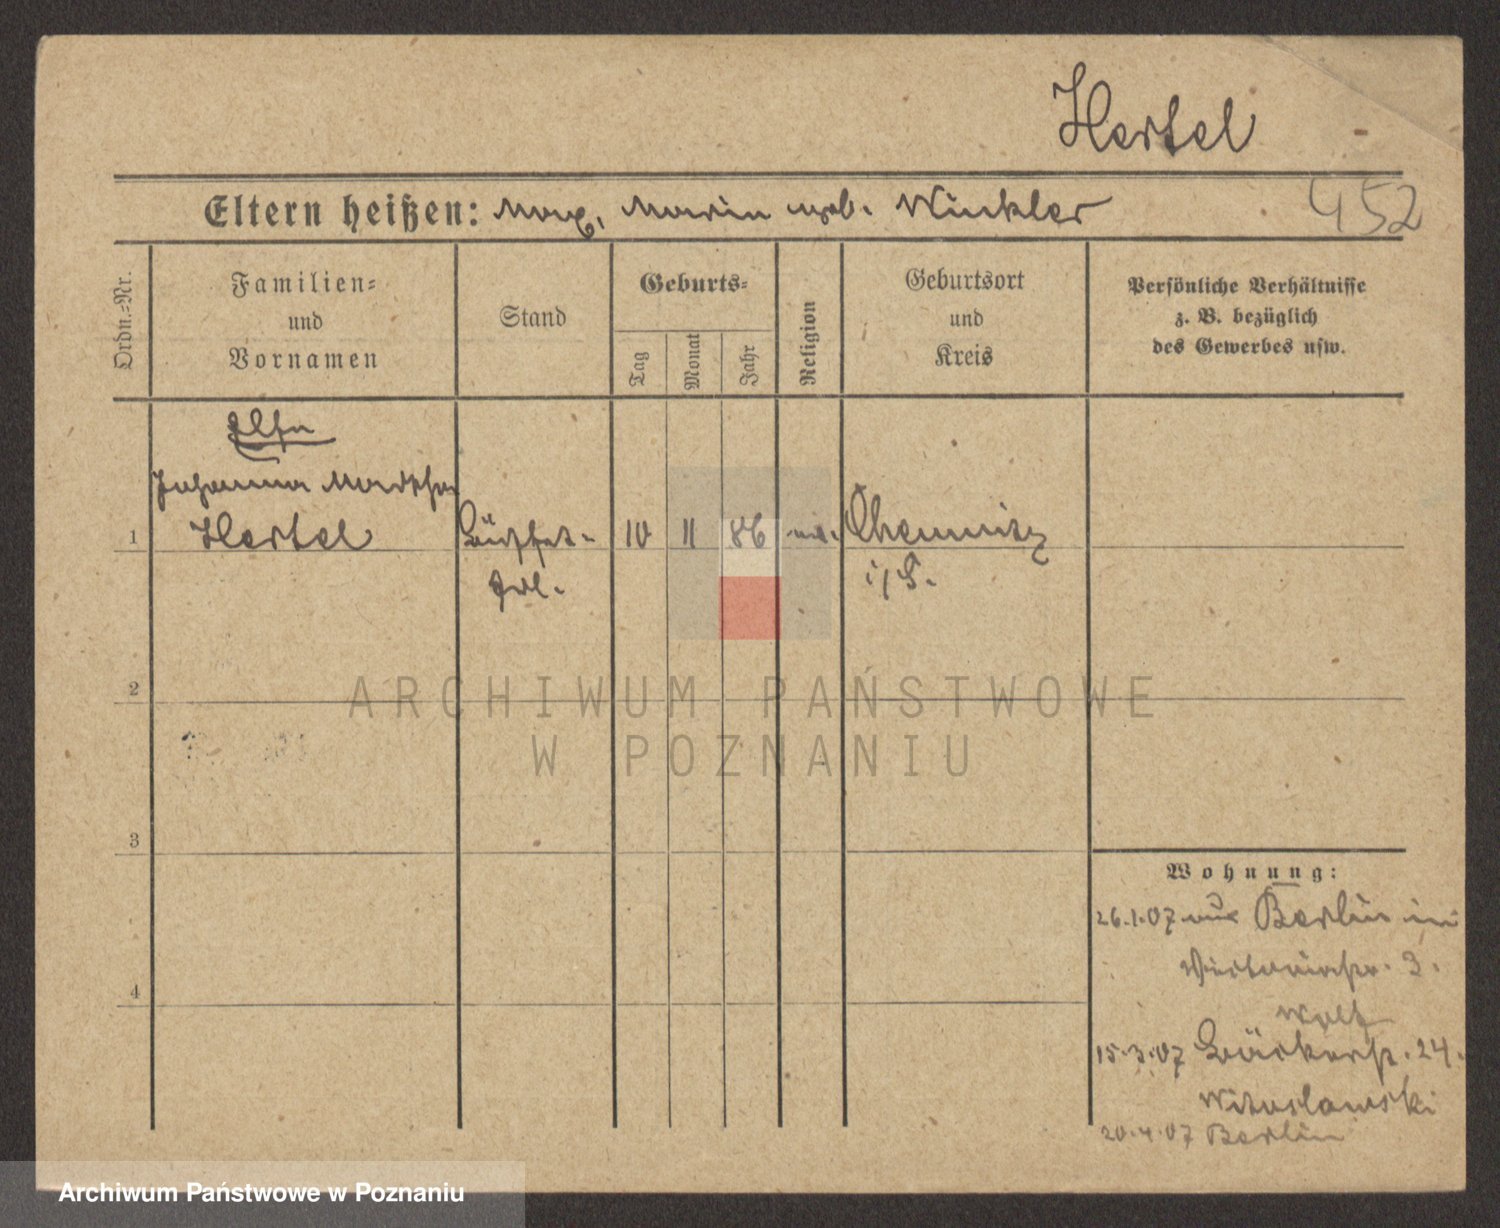 Hertel
Eltern heißen: Max, Marie geb. Winkler
452
Ordn.-Nr.
Familien-
und
Vornamen
Stand
Geburts-
Tag
Monat
Jahr
Religion
Geburtsort
und
Kreis
Persönliche Verhältnisse
z. B. bezüglich
des Gewerbes usw.
Elsa
Johanna Martha
1 Hertel Büffet- 10 11 86 Chemnitz
i/S.
2
3
4
Wohnung:
26.1.07 aus Berlin in
Victoriastr. 3.
Wolf
15.3.07 Bäckerstr. 24.
Witoslawski
20.4.07 Berlin
ARCHIWUM PAŃSTWOWE
W POZNANIU
Archiwum Państwowe w Poznaniu